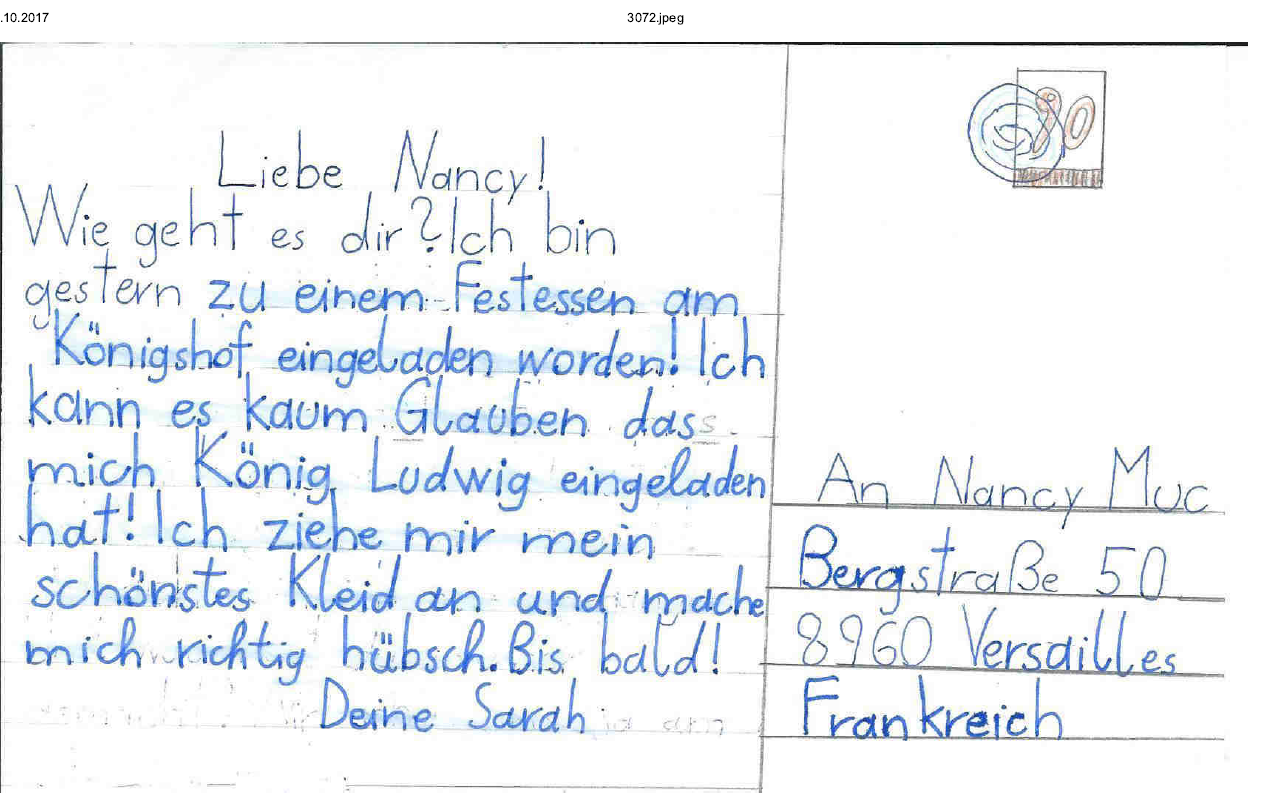 .10.2017
3072.jpeg
Liebe Nancy!
Wie geht es dir? Ich bin
gestern zu einem Festessen am
Königshof eingeladen worden! Ich
kann es kaum Glauben dass
mich König Ludwig eingeladen
hat! Ich ziehe mir mein
schönstes Kleid an und mache
mich richtig hübsch. Bis bald!
Deine Sarah
80
An Nancy Muc
Bergstraße 50
8960 Versailles
Frankreich